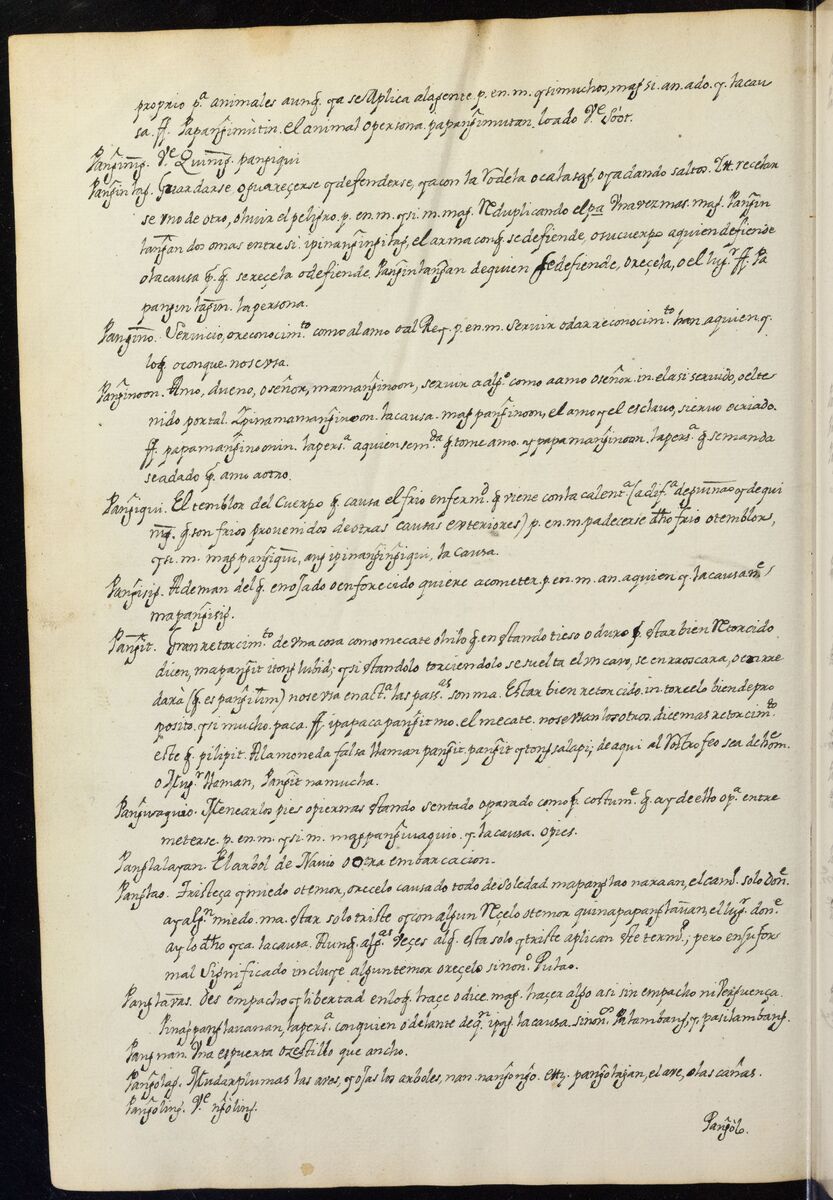 proprio p.ª animales aunq̃. ya se Aplica alagente. p. en. m. ysi muchos, mag̃ si. an. ado. y. la cau
sa. ff. Papang̃imùtin. el animal o persona. papang̃imutan. lo a do V.e Sóot.
Pang̃inig̃. V.e Quinig̃. pang̃iqui
Pang̃intag̃. Guardarse, o guareçerse y defenderse, ya con la rodela o ya dando saltos. Itt. recelar
se uno de otro, o huir el peligro. p. en. m. ysi. m. mag. Reduplicando el pa una vez mas. mag. Pang̃in
tang̃an dos o mas entre si. ipinang̃ing̃itag, el arma conq̃. se defiende, o su cuerpo aquien defiende
o la causa q̃. q̃. se reçela o defiende. Pang̃intang̃an de quien se defiende, o reçela, o el lug.r ff. Pa
pang̃in tag̃in. la persona.
Pang̃ino. Servicio, o reconocim.to como al amo o al Rey. p. en. m. servir o dar reconocim.to han, aquien. y.
loq̃. o conque. no se vsa.
Pang̃inoon. Amo, dueno, o señor, mamang̃inoon, servir a alg.o como a amo o señor. in. el asi servido, o el te
nido por tal. Ipinamamang̃inoon. la causa. mag pang̃inoon, el amo y el esclavo, siervo o criado.
ff. papamang̃inoonin. la pers.ª aquien se m.da q̃. tome amo. y papamang̃inoon. la pers.ª q̃. se manda
sea dado q̃. amo a otro.
Pang̃iqui. El temblor del Cuerpo q̃. causa el frio enferm.d q̃. viene con la calent.ª (a dif.ª de guinao y de qui
nig̃. q̃. son frios provenidos de otras causas exteriores) p. en. m. padecerse dho frio o temblors,
ysi. m. mag pang̃iqui, ang̃ ipinang̃ing̃iqui, la causa.
Pang̃isig̃. Ademan del q̃. enojado o enforecido quiere acometer. p. en. m. an. aquien y. la causa
mapang̃isig̃.
Pang̃it. Gran retorcim.to de una cosa como mecate o hilo q̃. en estando tieso o duro q̃. estar bien retorcido
dicen, mapang̃it itong̃ lubid; ysi estandolo torciendolo se suelta el un cavo, se enrroscara, o enrre
darà (q̃. es pang̃ilim) no se vsa en act.ª las pass.as son ma. Estar bien retorcido. in. torcelo bien de pro
posito. ysi mucho. paca. ff. ipapaca pang̃it mo. el mecate. no se vsan los otros. dice mas retorcim.to
este q̃. pilipit. A la moneda falsa llaman pang̃it. pang̃it ytong̃ salapi; de aqui al rostro feo sea de hom.e
o Mug.r llaman, Pang̃it na mucha.
Pang̃iuaquio. Menear los pies o piernas estando sentado o parado como q̃. costum.e q̃. ay de ello o p.ª entre
meterse. p. en. m. ysi. m. mag̃ pang̃iuaquio. y. la causa. o pies.
Pang̃lalayan. El arbol de Navio o otra embarcacion.
Pang̃lao. Tristeça y miedo o temor, o reçelo causado todo de soledad mapang̃lao na raan, el cam.o solo don.e
ay alg.n miedo. ma. estar solo triste y con algun reçelo o temor quinapapang̃lauan, el lug.r don.e
ay lo dho y ca. la causa. Aunq̃. alg.as veçes alq̃. esta solo y triste aplican este term.o; pero en su for
mal significado incluye algun temor o reçelo. sinon.o Putao.
Pang̃lavas. Des empacho y libertad en loq̃. haçe o dice. mag. haçer algo asi sin empacho ni verguença.
Pinagpang̃lavanan, la pers.ª con quien o delante de q.n ipag. la causa. sinon.o Palambang̃, y. pasilambang̃.
Pang̃nan. Una espuerta o zestillo que ancho.
Pang̃olag̃. Mudar plumas las aves, y ojas los arboles, nan. nang̃ong̃o. ettz. pang̃olagan, el ave, o las cañas.
Pang̃oling̃. V.e ng̃oling̃.
Pang̃olo.